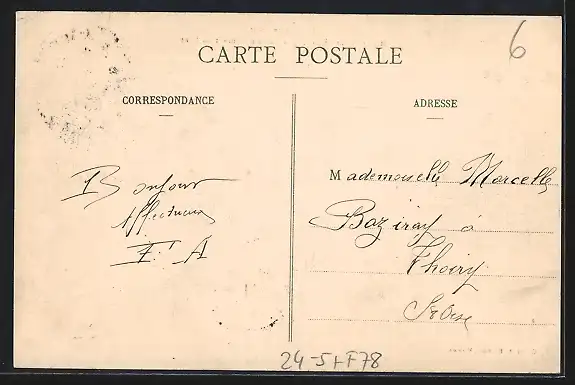 6
CARTE POSTALE
CORRESPONDANCE
ADRESSE
Mademoiselle Marcelle
Baziray à
Thoiry
Bonjour
Affectueux
E A
24-5+F78